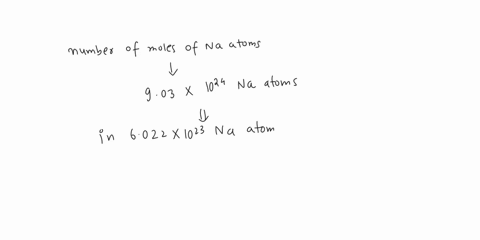 number of moles of Na atoms
↓
9.03 × 10²⁴ Na atoms
⇓
in 6.022 × 10²³ Na atom